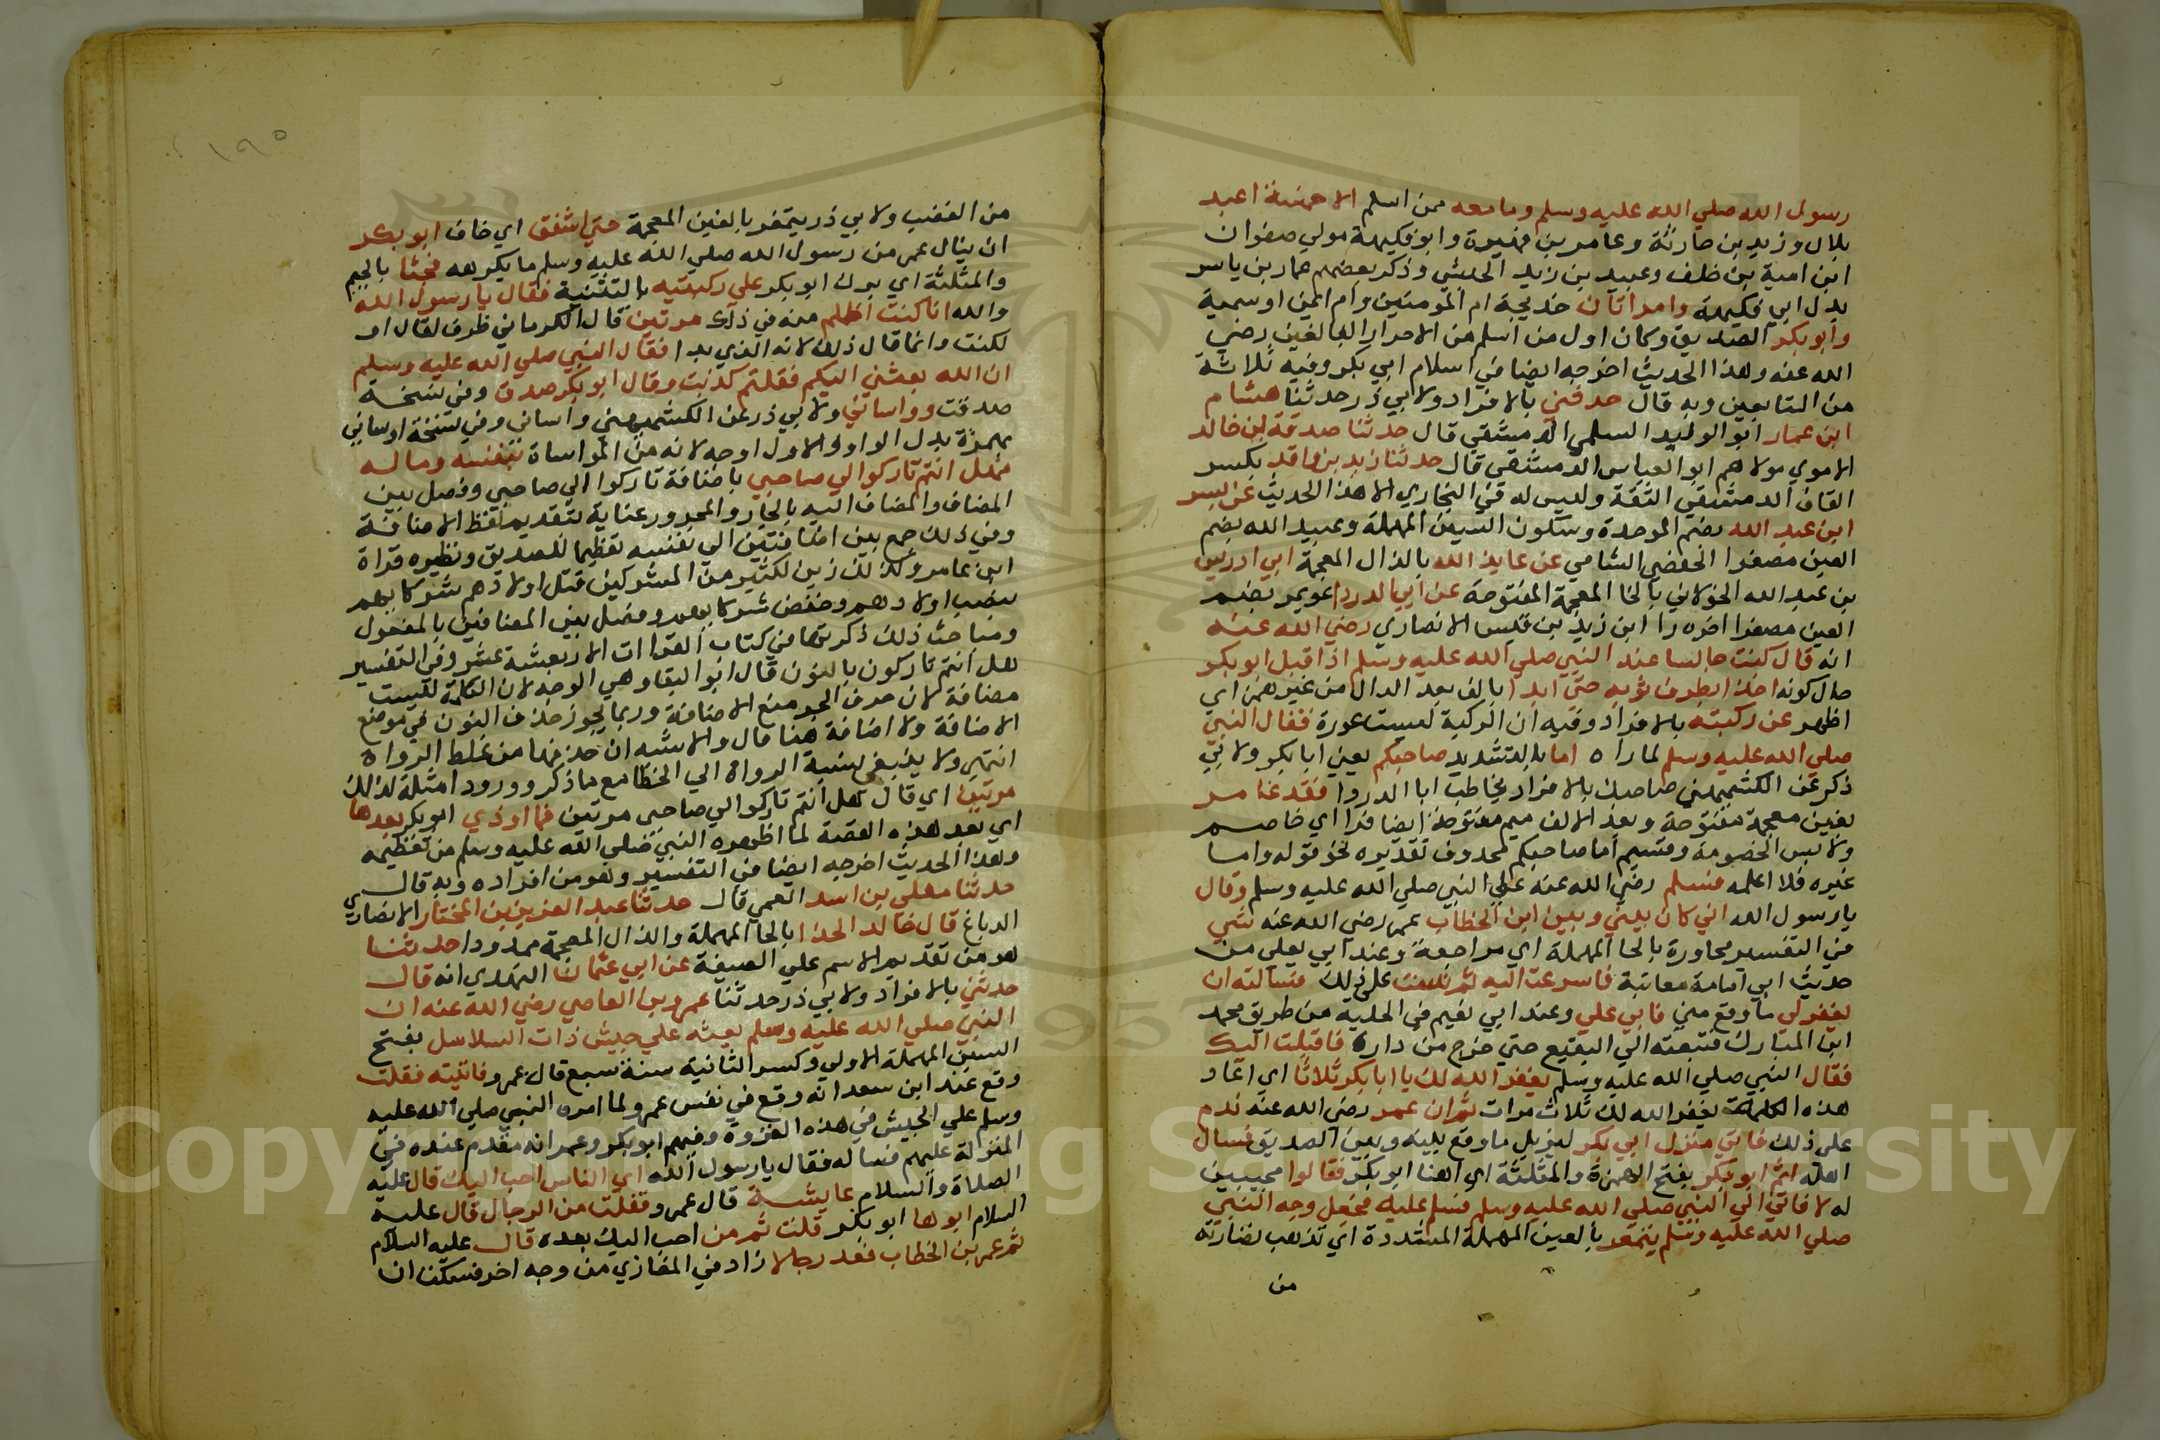 رسول الله صلي الله عليه وسلم ومامعه ممن اسلم الا خمسة اعبد
بلال وزيد بن حارثة وعامر بن فهيرة وابو فكيهة مولي صفوان
ابن امية بن خلف وعبيد بن زيد الحبشي وذكر بعضهم عمار بن ياسر
بدل ابي فكيهة وامراتان خديجة ام المومنين وام ايمن او سمية
وابو بكر الصديق وكان اول من اسلم من الاحرار البالغين رضي
الله عنه وهذا الحديث اخرجه ايضا في اسلام ابي بكر وفيه ثلاثة
من التابعين وبه قال حدثني بالافراد ولابي ذر حدثنا هشام
ابن عمار ابو الوليد السلمي الدمشقي قال حدثنا صدقة بن خالد
الاموي مولاهم ابو العباس الدمشقي قال حدثنا زيد بن واقد بكسر
القاف الدمشقي الثقة وليس له في البخاري الا هذا الحديث عن بسر
ابن عبد الله بضم الموحدة وسكون السين المهملة وعبيد الله بضم
العين مصغرا الحضمي الشامي عن عايذ الله بالذال المعجمة ابي ادريس
بن عبد الله الخولاني بالخا المعجمة المفتوحة عن ابي الدردا عويمر بضم
العين مصغرا اخره را ابن زيد بن قيس الانصاري رضي الله عنه
انه قال كنت جالسا عند النبي صلي الله عليه وسلم اذ اقبل ابو بكر
حال كونه اخذا بطرف ثوبه حتي ابدا بالف بعد الدال من غير همز اي
اظهر عن ركبته بالافراد وفيه ان الركبة ليست عورة فقال النبي
صلي الله عليه وسلم لما راه اما بالتشديد صاحبكم يعني ابا بكر ولابي
ذكر عن الكشميهني صاحبك بالافراد يخاطب ابا الدردا فقد غامر
بغين معجمة مفتوحة وبعد الالف ميم مفتوحة ايضا فرا اي خاصم
ولابس الخصومة وقسيم اما صاحبكم محذوف تقديره نحو قوله واما
غيره فلا اعلمه فسلم رضي الله عنه علي النبي صلي الله عليه وسلم وقال
يارسول الله اني كان بيني وبين ابن الخطاب عمر رضي الله عنه شي
في التفسير محاورة بالحا المهملة اي مراجعة وعند ابي يعلي من
حديث ابي امامة معاتبة فاسرعت اليه ثم ندمت علي ذلك فسالته ان
يغفر لي ما وقع مني فابي علي وعند ابي نعيم في الحلية من طريق محمد
ابن المبارك فتبعته الي البقيع حتي خرج من داره فاقبلت اليك
فقال النبي صلي الله عليه وسلم يغفر الله لك يا ابا بكر ثلاثا اي اعاد
هذه الكلمة يغفر الله لك ثلاث مرات ثم ان عمر رضي الله عنه ندم
علي ذلك فاتي منزل ابي بكر ليزيل ما وقع بينه وبين الصديق فسال
اهله اثم ابو بكر بفتح الهمزة والمثلثة اي اهنا ابو بكر فقالوا مجيبين
له لا فاتي الي النبي صلي الله عليه وسلم فسلم عليه فجعل وجه النبي
صلي الله عليه وسلم يتمعر بالعين المهملة المشددة اي تذهب نضارته
من
١٩٥
من الغضب ولابي ذر يتمغر بالغين المعجمة حتي اشفق اي خاف ابو بكر
ان ينال عمر من رسول الله صلي الله عليه وسلم ما يكرهه فجثا بالجيم
والمثلثة اي برك ابو بكر علي ركبتيه بالتثنية فقال يا رسول الله
والله انا كنت اظلم منه في ذلك مرتين قال الكرماني ظرف لقال او
لكنت وانما قال ذلك لانه الذي بدا فقال النبي صلي الله عليه وسلم
ان الله بعثني اليكم فقلتم كذبت وقال ابو بكر صدق وفي نسخة
صدقت وواساني ولابي ذر عن الكشميهني واساني وفي نسخة اوساني
بهمزة بدل الواو والاول اوجه لانه من المواساة بنفسه وماله
فهل انتم تاركوا لي صاحبي باضافة تاركوا الي صاحبي وفصل بين
المضاف والمضاف اليه بالجار والمجرور عناية بتقديم لفظ الاضافة
وفي ذلك جمع بين اضافتين الي نفسه تعظيما للصديق ونظيره قراة
ابن عامر وكذلك زين لكثير من المشركين قتل اولادهم شركايهم
بنصب اولادهم وخفض شركايهم وفصل بين المضافين بالمفعول
ومباحث ذلك ذكرتها في كتاب القراات الاربعة عشر وفي التفسير
هل انتم تاركون بالنون قال ابو البقا وهي الوجه لان الكلمة ليست
مضافة لان حرف الجر منع الاضافة وربما يجوز حذف النون في موضع
الاضافة ولا اضافة هنا قال والاشبه ان حذفها من غلط الرواة
انتهي ولا ينبغي نسبة الرواة الي الخطا مع ما ذكر وورود امثلة لذلك
مرتين اي قال هل انتم تاركوا لي صاحبي مرتين فما اوذي ابو بكر بعدها
اي بعد هذه القصة لما اظهره النبي صلي الله عليه وسلم من تعظيمه
وهذا الحديث اخرجه ايضا في التفسير وهو من افراده وبه قال
حدثنا معلي بن اسد العمي قال حدثنا عبد العزيز بن المختار الانصاري
الدباغ قال خالد الحذا بالحا المهملة والذال المعجمة ممدودا حدثنا
هو من تقديم الاسم علي الصيغة عن ابي عثمان النهدي انه قال
حدثني بالافراد ولابي ذر حدثنا عمرو بن العاصي رضي الله عنه ان
النبي صلي الله عليه وسلم بعثه علي جيش ذات السلاسل بفتح
السين المهملة الاولي وكسر الثانية سنة سبع قال عمرو فاتيته فقلت
وقع عند ابن سعد انه وقع في نفس عمرو لما امره النبي صلي الله عليه
وسلم علي الجيش في هذه الغزوة وفيهم ابو بكر وعمر انه مقدم عنده في
المنزلة عليهم فساله فقال يا رسول الله اي الناس احب اليك قال عليه
الصلاة والسلام عايشة قال عمرو فقلت من الرجال قال عليه
السلام ابوها ابو بكر قلت ثم من احب اليك بعده قال عليه السلام
ثم عمر بن الخطاب فعد رجالا زاد في المغازي من وجه اخر فسكت ان
Copyright © King Saud University
1957